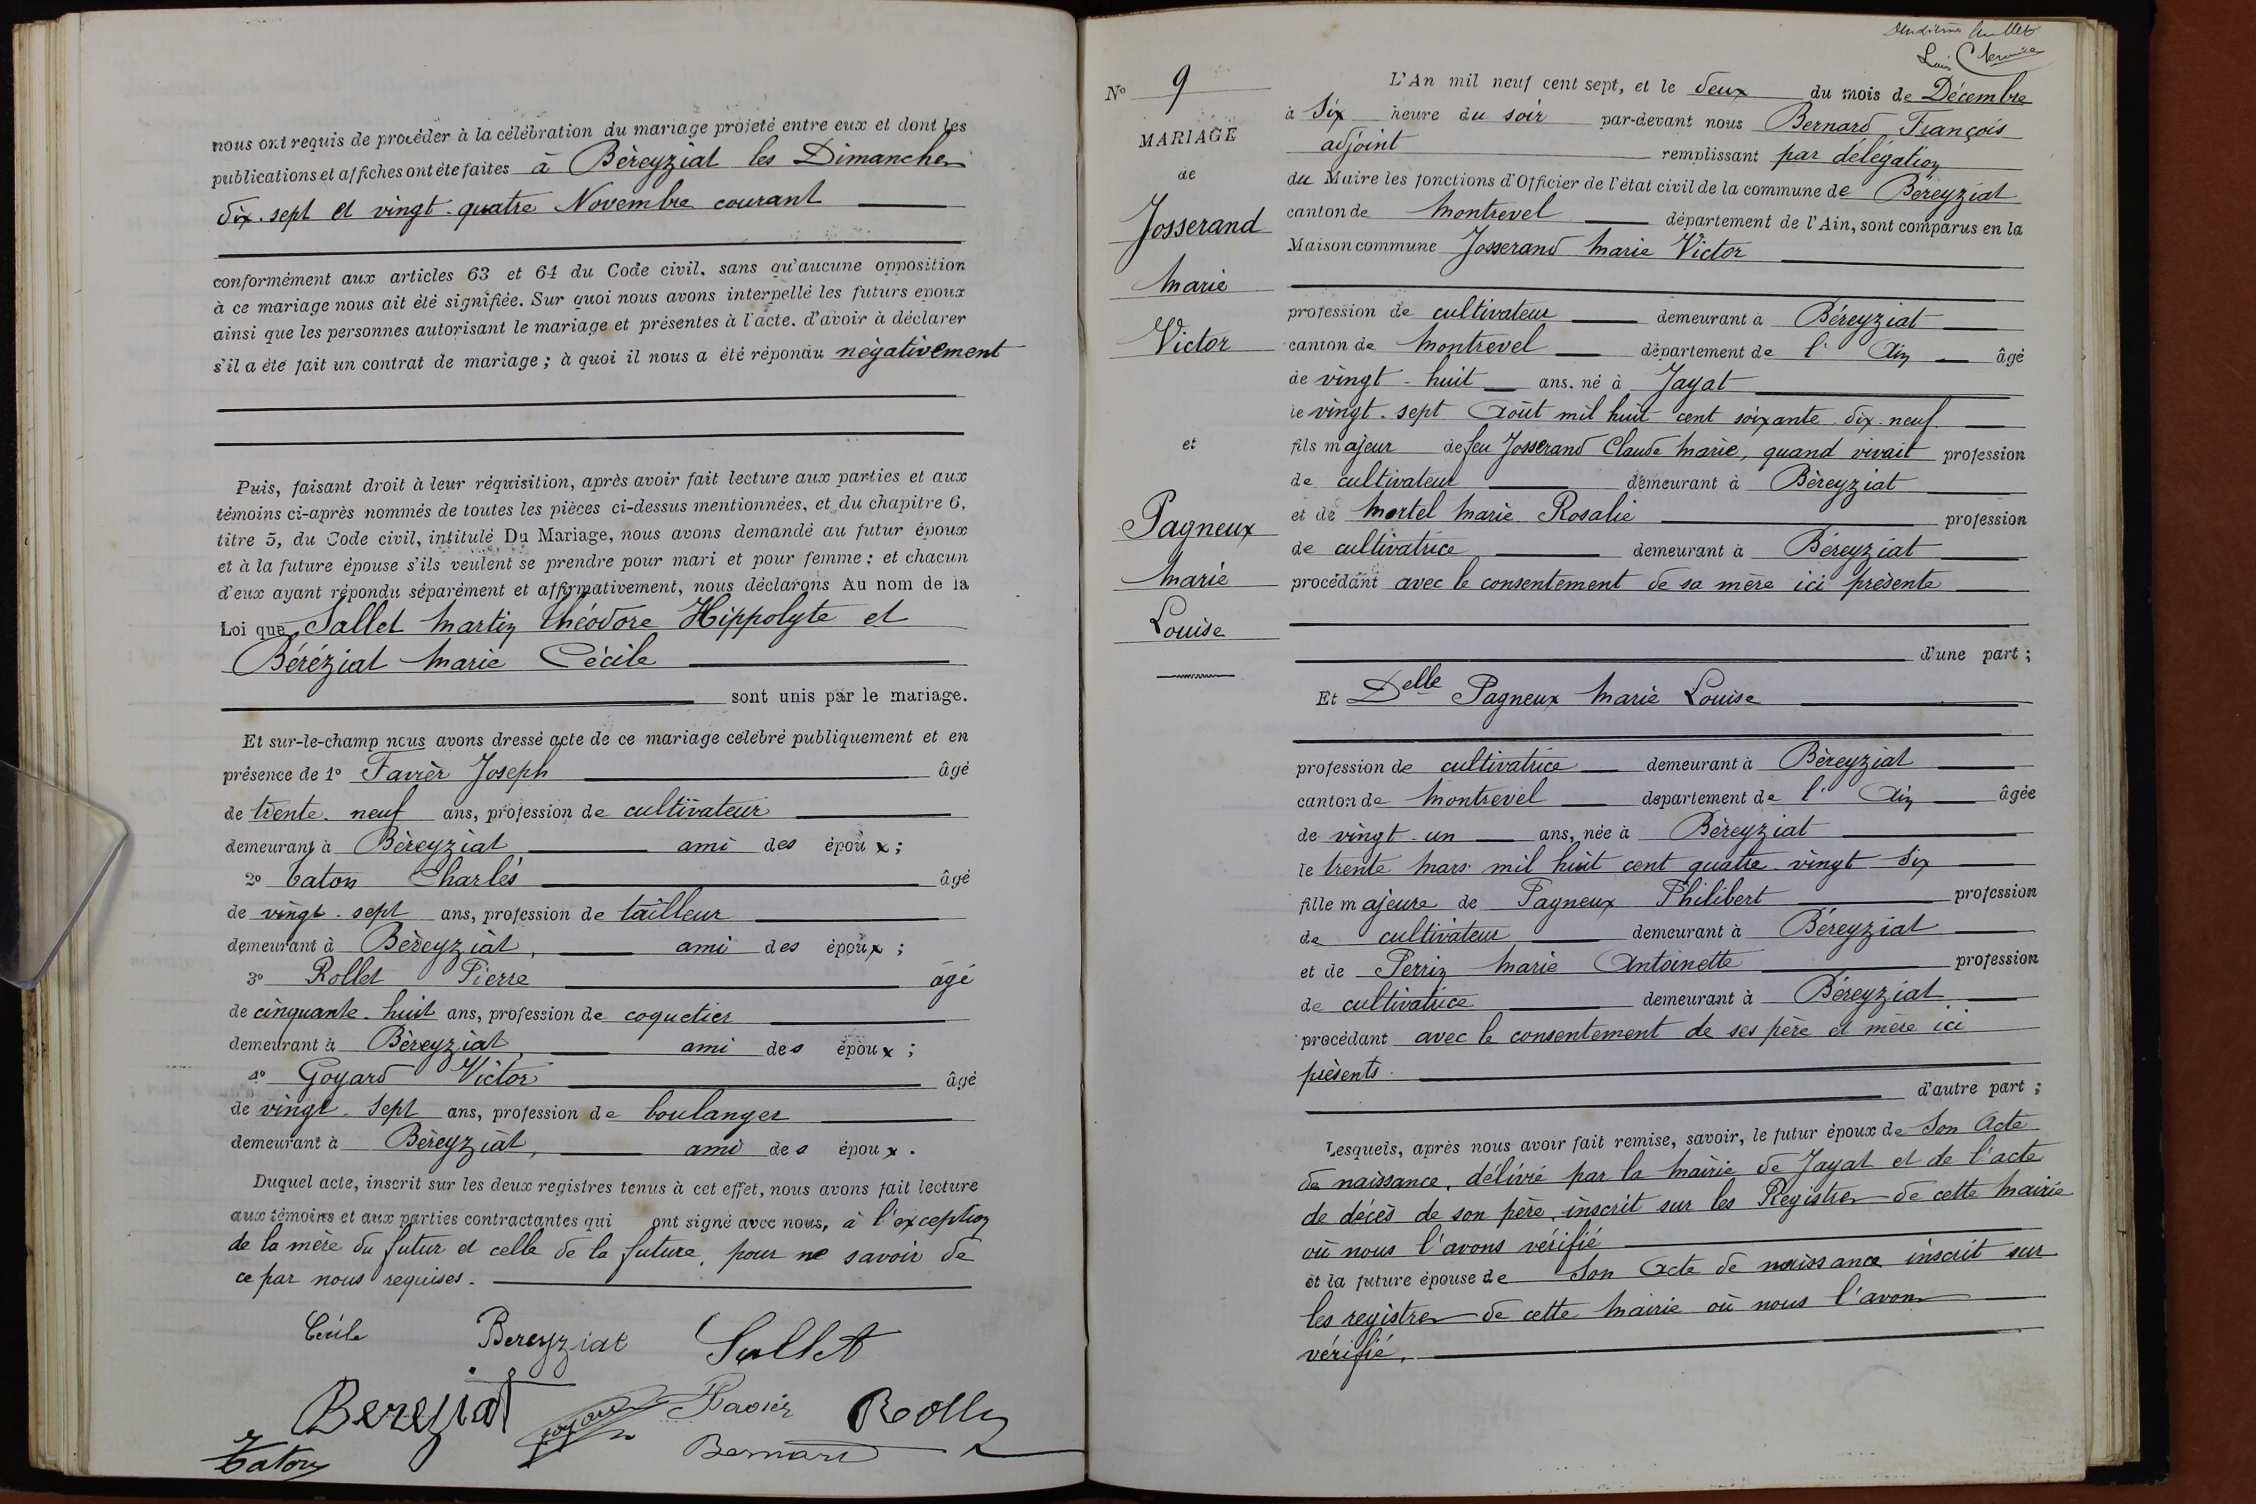 nous ont requis de procéder à la célébration du mariage projeté entre eux et dont les
publications et affiches ont été faites à Béreyziat les Dimanches
dix-sept et vingt-quatre Novembre courant
conformément aux articles 63 et 64 du Code civil, sans qu'aucune opposition
à ce mariage nous ait été signifiée. Sur quoi nous avons interpellé les futurs époux
ainsi que les personnes autorisant le mariage et présentes à l'acte, d'avoir à déclarer
s'il a été fait un contrat de mariage ; à quoi il nous a été répondu négativement
Puis, faisant droit à leur réquisition, après avoir fait lecture aux parties et aux
témoins ci-après nommés de toutes les pièces ci-dessus mentionnées, et du chapitre 6,
titre 5, du Code civil, intitulé Du Mariage, nous avons demandé au futur époux
et à la future épouse s'ils veulent se prendre pour mari et pour femme ; et chacun
d'eux ayant répondu séparément et affirmativement, nous déclarons Au nom de la
Loi que Sallet Martin Théodore Hippolyte et
Béréziat Marie Cécile
sont unis par le mariage.
Et sur-le-champ nous avons dressé acte de ce mariage célébré publiquement et en
présence de 1° Favier Joseph âgé
de trente-neuf ans, profession de cultivateur
demeurant à Béreyziat ami des époux ;
2° Caton Charles âgé
de vingt-sept ans, profession de tailleur
demeurant à Béreyziat, ami des époux ;
3° Rollet Pierre âgé
de cinquante-huit ans, profession de coquetier
demeurant à Béreyziat, ami des époux ;
4° Goyard Victor âgé
de vingt-sept ans, profession de boulanger
demeurant à Béreyziat, ami des époux.
Duquel acte, inscrit sur les deux registres tenus à cet effet, nous avons fait lecture
aux témoins et aux parties contractantes qui ont signé avec nous, à l'exception
de la mère du futur et celle de la future, pour ne savoir de
ce par nous requises.
Cécile Bereyziat Sallet
Berezíat Goyard Favier Rollet
Caton Bernard
N° 9
MARIAGE
de
Josserand
Marie
Victor
et
Pagneux
Marie
Louise
L'An mil neuf cent sept, et le deux du mois de Décembre
à six heure du soir par-devant nous Bernard François
adjoint remplissant par délégation
du Maire les fonctions d'Officier de l'état civil de la commune de Béreyziat
canton de Montrevel département de l'Ain, sont comparus en la
Maison commune Josserand Marie Victor
profession de cultivateur demeurant à Béreyziat
canton de Montrevel département de l'Ain âgé
de vingt-huit ans, né à Jayat
le vingt-sept Août mil huit cent soixante-dix-neuf
fils majeur de feu Josserand Claude Marie, quand vivait profession
de cultivateur demeurant à Béreyziat
et de Mortel Marie Rosalie profession
de cultivatrice demeurant à Béreyziat
procédant avec le consentement de sa mère ici présente
d'une part ;
Et Delle Pagneux Marie Louise
profession de cultivatrice demeurant à Béreyziat
canton de Montrevel département de l'Ain âgée
de vingt-un ans, née à Béreyziat
le trente Mars mil huit cent quatre-vingt-six
fille majeure de Pagneux Philibert profession
de cultivateur demeurant à Béreyziat
et de Perrin Marie Antoinette profession
de cultivatrice demeurant à Béreyziat
procédant avec le consentement de ses père et mère ici
présents.
d'autre part ;
Lesquels, après nous avoir fait remise, savoir, le futur époux de Son Acte
de naissance, délivré par la Mairie de Jayat et de l'acte
de décès de son père, inscrit sur les Registres de cette Mairie
où nous l'avons vérifié
et la future épouse de Son Acte de naissance inscrit sur
les registres de cette Mairie où nous l'avons
vérifié.